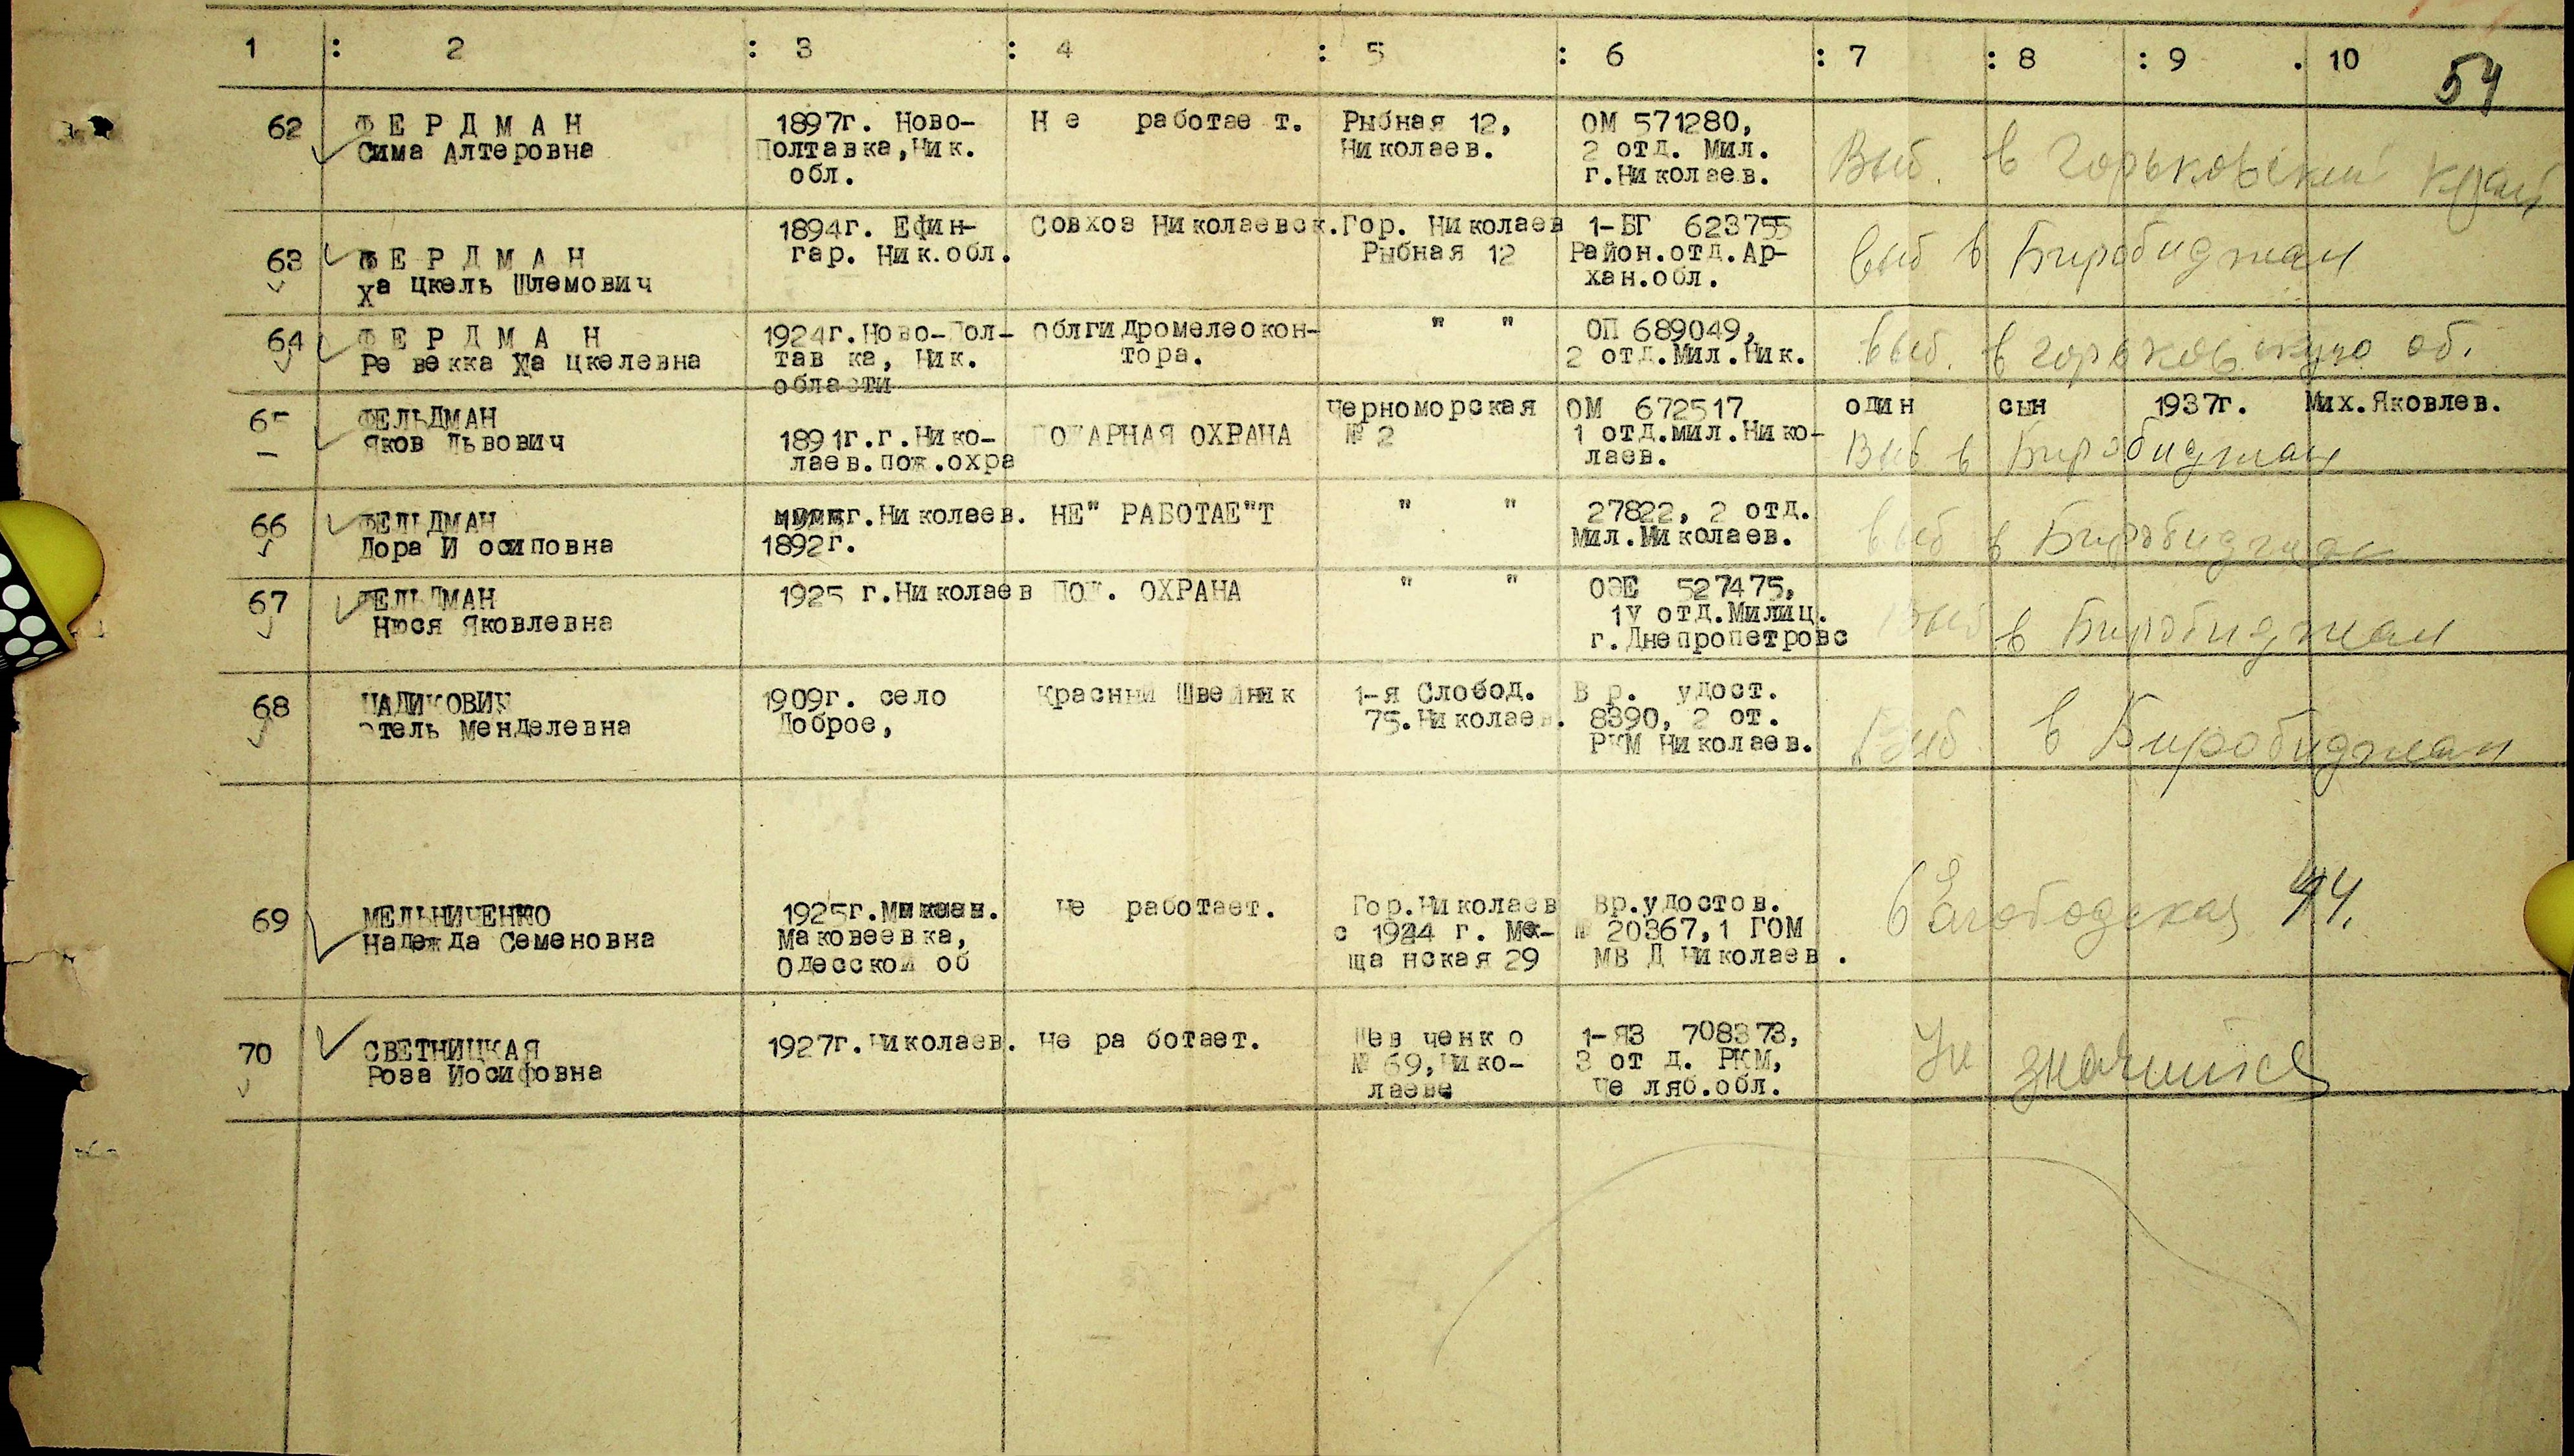 1 : 2 : 3 : 4 : 5 : 6 : 7 : 8 : 9 . 10
54
62 ФЕРДМАН 1897г. Ново- Не работает. Рыбная 12, ОМ 571280,
Сима Алтеровна Полтавка,Ник. Николаев. 2 отд. Мил.
обл. г.Николаев. Выб. в Горьковский край
1894г. Ефин- Совхоз Николаевск. Гор. Николаев 1-БГ 623755
63 ФЕРДМАН гар. Ник.обл. Рыбная 12 Район.отд.Ар- выб в Биробиджан
Хацкель Шлемович хан.обл.
64 ФЕРДМАН 1924г.Ново-Пол- Облгидромелеокон- " " ОП 689049,
Ревекка Хацкелевна тавка, Ник. тора. 2 отд.Мил.Ник. выб. в горьковскую об.
области
65 ФЕЛЬДМАН Черноморская ОМ 672517 один сын 1937г. Мих.Яковлев.
Яков Львович 1891г.г.Нико- ПОЖАРНАЯ ОХРАНА № 2 1 отд.мил.Нико- Выб в Биробиджан
лаев.пож.охра лаев.
66 ФЕЛЬДМАН г.Николаев. НЕ" РАБОТАЕ"Т " " 27822, 2 отд.
Дора Иосиповна 1892г. Мил.Миколаев. выб в Биробиджан
67 ФЕЛЬДМАН 1925 г.Николаев ПОЖ. ОХРАНА " " ОЭЕ 527475,
Нюся Яковлевна 1У отд.Милиц. Выб в Биробиджан
г.Днепропетровс
68 1909г. село Красный Швейник 1-я Слобод. Вр. удост.
Этель Менделевна Доброе, 75.Николаев. 8390, 2 от.
РКМ Николаев. Выб в Биробиджан
69 МЕЛЬНИЧЕНКО 1925г. Не работает. Гор.Николаев Вр.удостов.
Надежда Семеновна Маковеевка, с 1944 г. Ме- № 20367,1 ГОМ 6 Слободская 44.
Одесской об щанская 29 МВД Николаев.
70 СВЕТНИЦКАЯ 1927г.Николаев. Не работает. Шевченко 1-ЯЗ 708373,
Роза Иосифовна № 69,Нико- 3 отд. РКМ, Не значится
лаеве Челяб.обл.